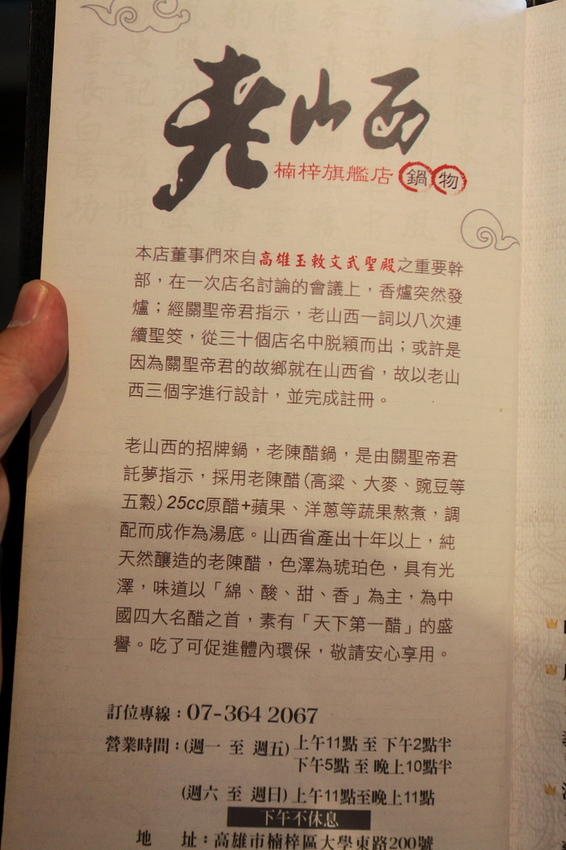 老山西
楠梓旗艦店 鍋物
本店董事們來自高雄玉敕文武聖殿之重要幹
部，在一次店名討論的會議上，香爐突然發
爐；經關聖帝君指示，老山西一詞以八次連
續聖筊，從三十個店名中脱穎而出；或許是
因為關聖帝君的故鄉就在山西省，故以老山
西三個字進行設計，並完成註冊。
老山西的招牌鍋，老陳醋鍋，是由關聖帝君
託夢指示，採用老陳醋(高粱、大麥、豌豆等
五穀)25cc原醋+蘋果、洋蔥等蔬果熬煮，調
配而成作為湯底。山西省產出十年以上，純
天然釀造的老陳醋，色澤為琥珀色，具有光
澤，味道以「綿、酸、甜、香」為主，為中
國四大名醋之首，素有「天下第一醋」的盛
譽。吃了可促進體內環保，敬請安心享用。
訂位專線：07-364 2067
營業時間：(週一 至 週五) 上午11點 至 下午2點半
下午5點 至 晚上10點半
(週六 至 週日) 上午11點至晚上11點
下午不休息
地 址：高雄市楠梓區大學東路200號